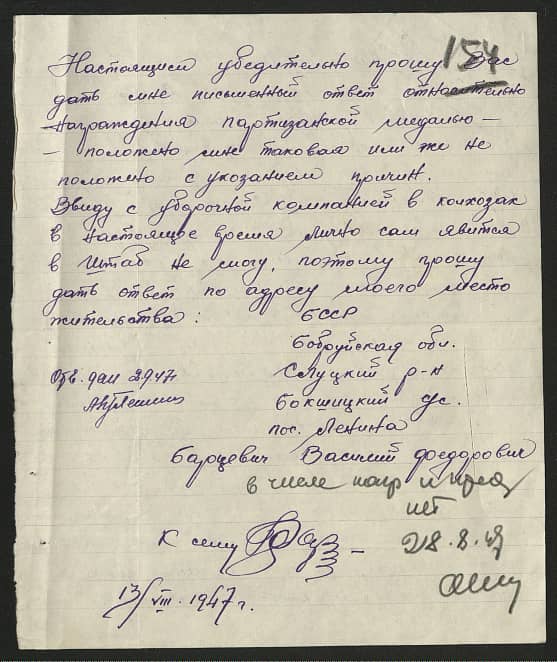 154
Настоящим убедительно прошу Вас
дать мне письменный ответ относительно
награждения партизанской медалью –
– положено мне таковая или же не
положено с указанием причин.
Ввиду с уборочной компанией в колхозах
в настоящее время лично сам явится
в Штаб не смогу, поэтому прошу
дать ответ по адресу моего место
жительства:
БССР
Бобруйская обл.
Слуцкий р-н
Бокшицкий с/с.
пос. Ленина
Барцевич Василий Феодорович
Отв. дан 2.9.47
в числе нагр и
нет
К сему
28.8.47
13/VIII.1947г.